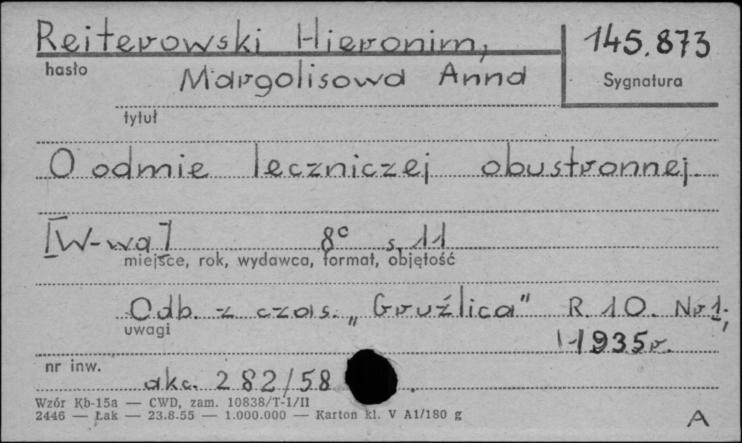 Reiterowski Hieronim,
145.873
hasło
Margolisowa Anna
Sygnatura
tytuł
O odmie leczniczej obustronnej.
[W-wa] 8° s. 11
miejsce, rok, wydawca, format, objętość
Odb. z czas. „Gruźlica" R. 10. Nr 1;
uwagi
1935r.
nr inw.
akc. 282/58
Wzór Kb-15a — CWD, zam. 10838/T-1/II
2446 — Łak — 23.8.55 — 1.000.000 — Karton kl. V A1/180 g
A